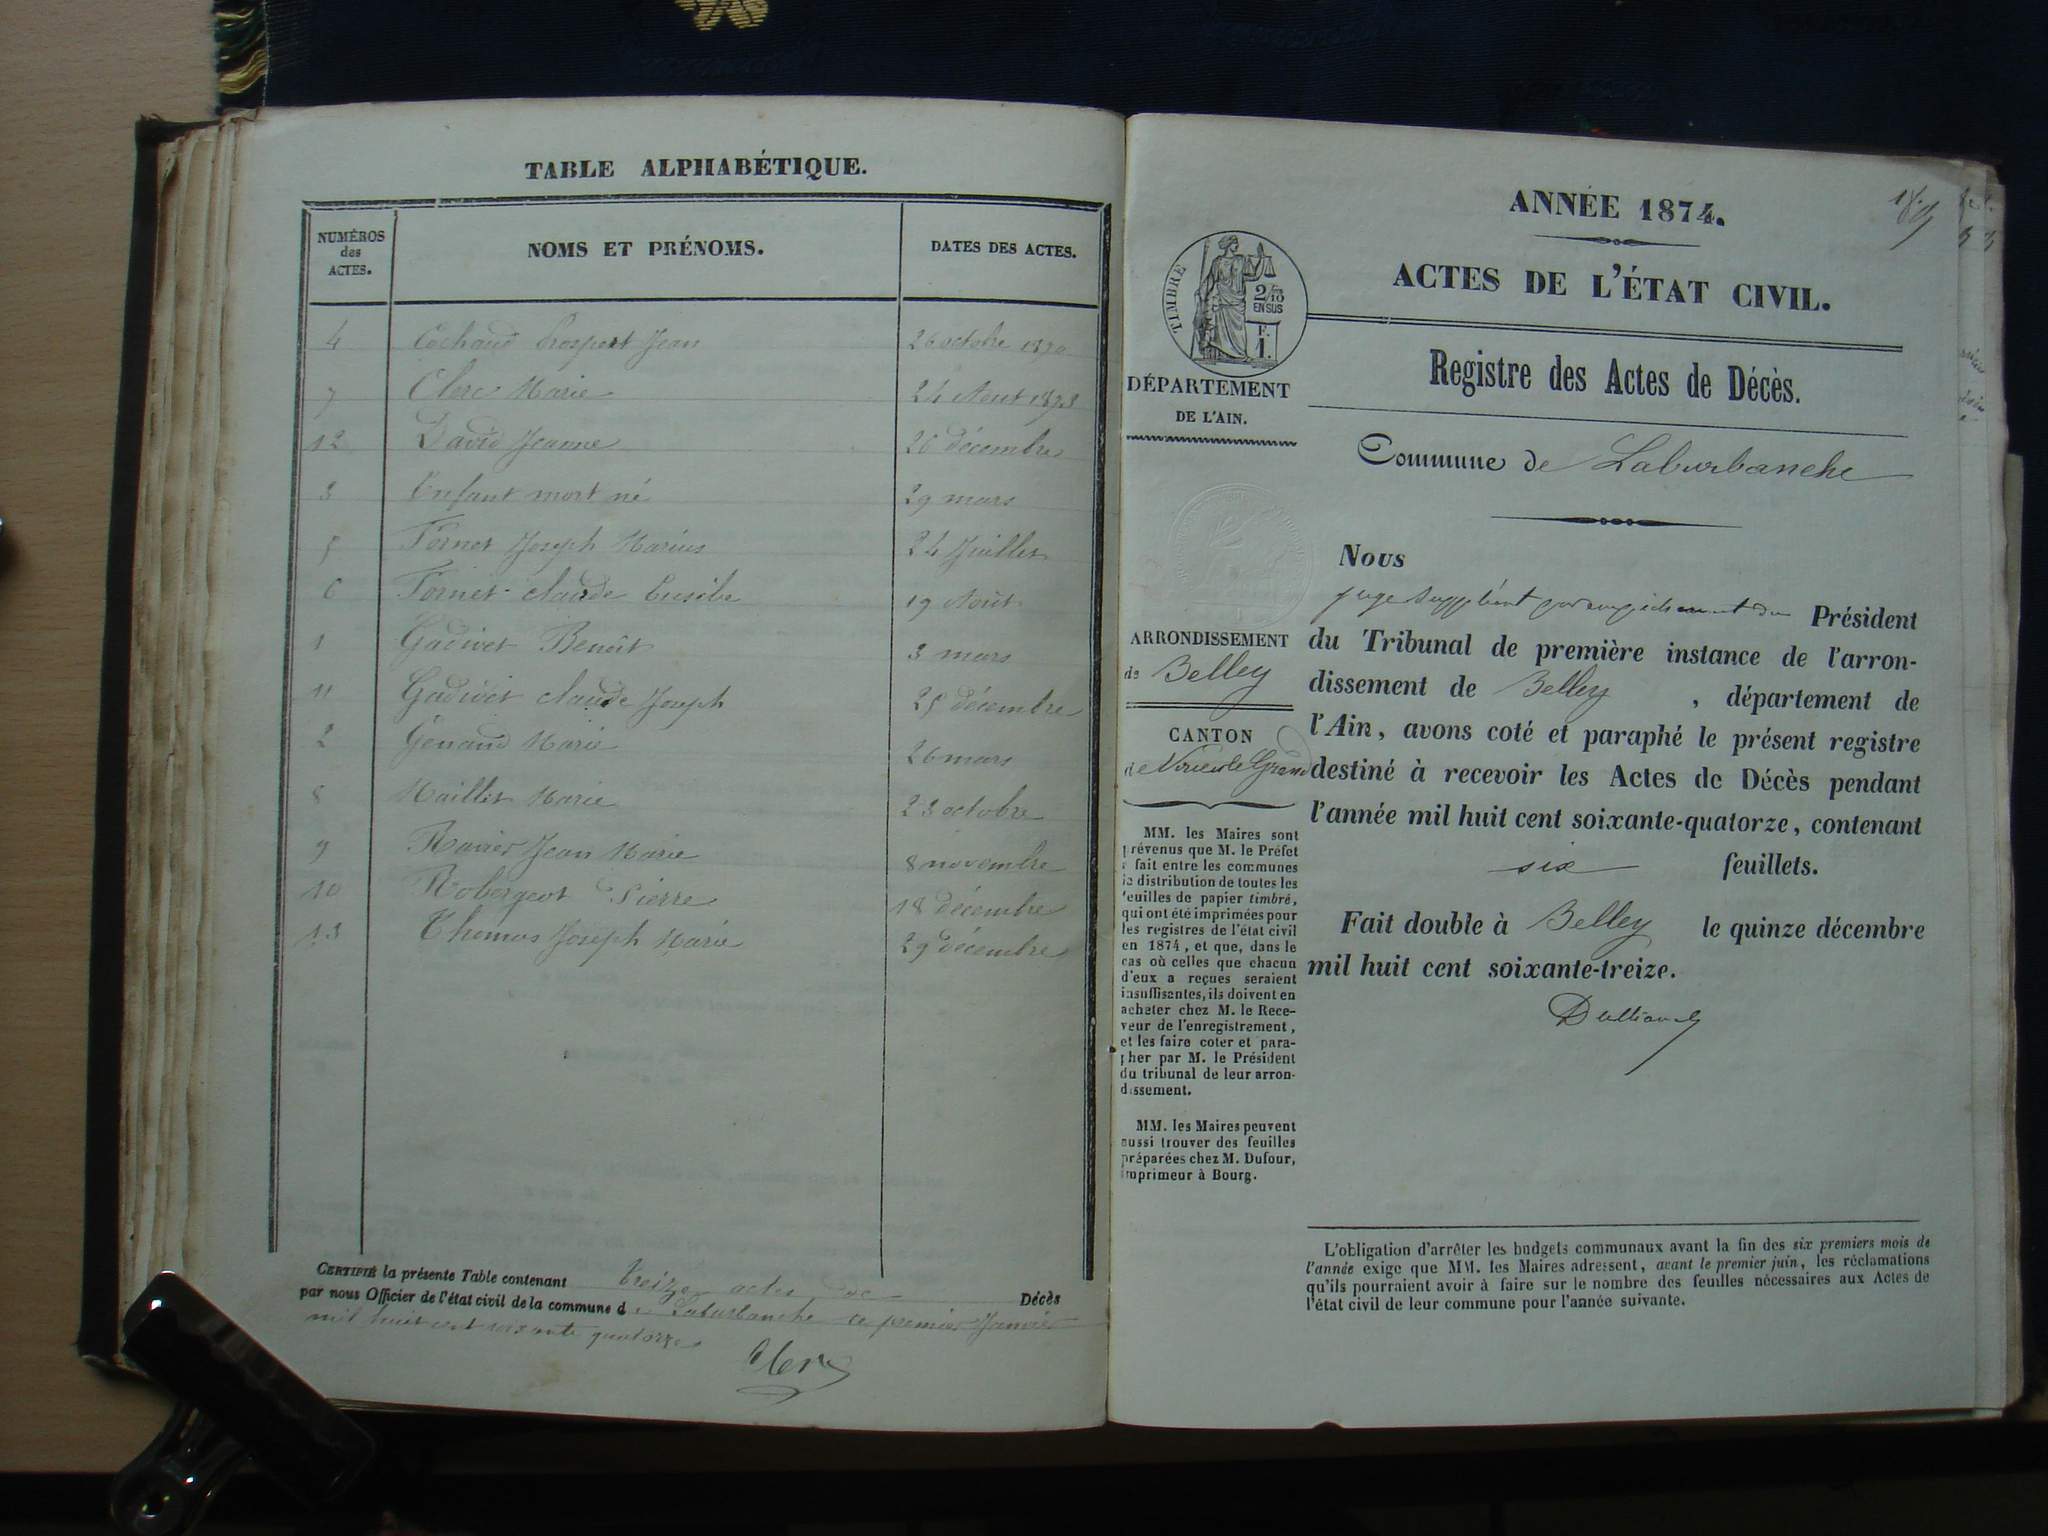 TABLE ALPHABÉTIQUE.
NUMÉROS des ACTES. NOMS ET PRÉNOMS. DATES DES ACTES.
4 Cochaud Prospert Jean 26 octobre
7 Clerc Marie 24 Aout 1873
12 David Jeanne 26 décembre
3 Enfant mort né 29 mars
5 Fornet Joseph Marius 24 Juillet
6 Fornet claude Eusèbe 19 Août
1 Gadivet Benoît 3 mars
11 Gadivet claude Joseph 25 décembre
2 Génand Marie 26 mars
8 Maillet Marie 23 octobre
9 Ravier Jean Marie 8 novembre
10 Robergeot Pierre 18 décembre
13 Thomas Joseph Marie 29 décembre
CERTIFIÉ la présente Table contenant treize actes de Décès
par nous Officier de l'état civil de la commune de Laburbanche ce premier Janvier
mil huit cent soixante quatorze
Clerc
ANNÉE 1874.
ACTES DE L'ÉTAT CIVIL.
TIMBRE
2/10
EN SUS
F.
1.
DÉPARTEMENT
DE L'AIN.
ARRONDISSEMENT
de Belley
CANTON
de Virieu le Grand
MM. les Maires sont
prévenus que M. le Préfet
a fait entre les communes
la distribution de toutes les
feuilles de papier timbré,
qui ont été imprimées pour
les registres de l'état civil
en 1874, et que, dans le
cas où celles que chacun
d'eux a reçues seraient
insuffisantes, ils doivent en
acheter chez M. le Rece-
veur de l'enregistrement,
et les faire coter et para-
pher par M. le Président
du tribunal de leur arron-
dissement.
MM. les Maires peuvent
aussi trouver des feuilles
préparées chez M. Dufour,
imprimeur à Bourg.
Registre des Actes de Décès.
Commune de Laburbanche
Nous
juge suppléant par empêchement du Président
du Tribunal de première instance de l'arron-
dissement de Belley, département de
l'Ain, avons coté et paraphé le présent registre
destiné à recevoir les Actes de Décès pendant
l'année mil huit cent soixante-quatorze, contenant
six feuillets.
Fait double à Belley le quinze décembre
mil huit cent soixante-treize.
L'obligation d'arrêter les budgets communaux avant la fin des six premiers mois de
l'année exige que MM. les Maires adressent, avant le premier juin, les réclamations
qu'ils pourraient avoir à faire sur le nombre des feuilles nécessaires aux Actes de
l'état civil de leur commune pour l'année suivante.